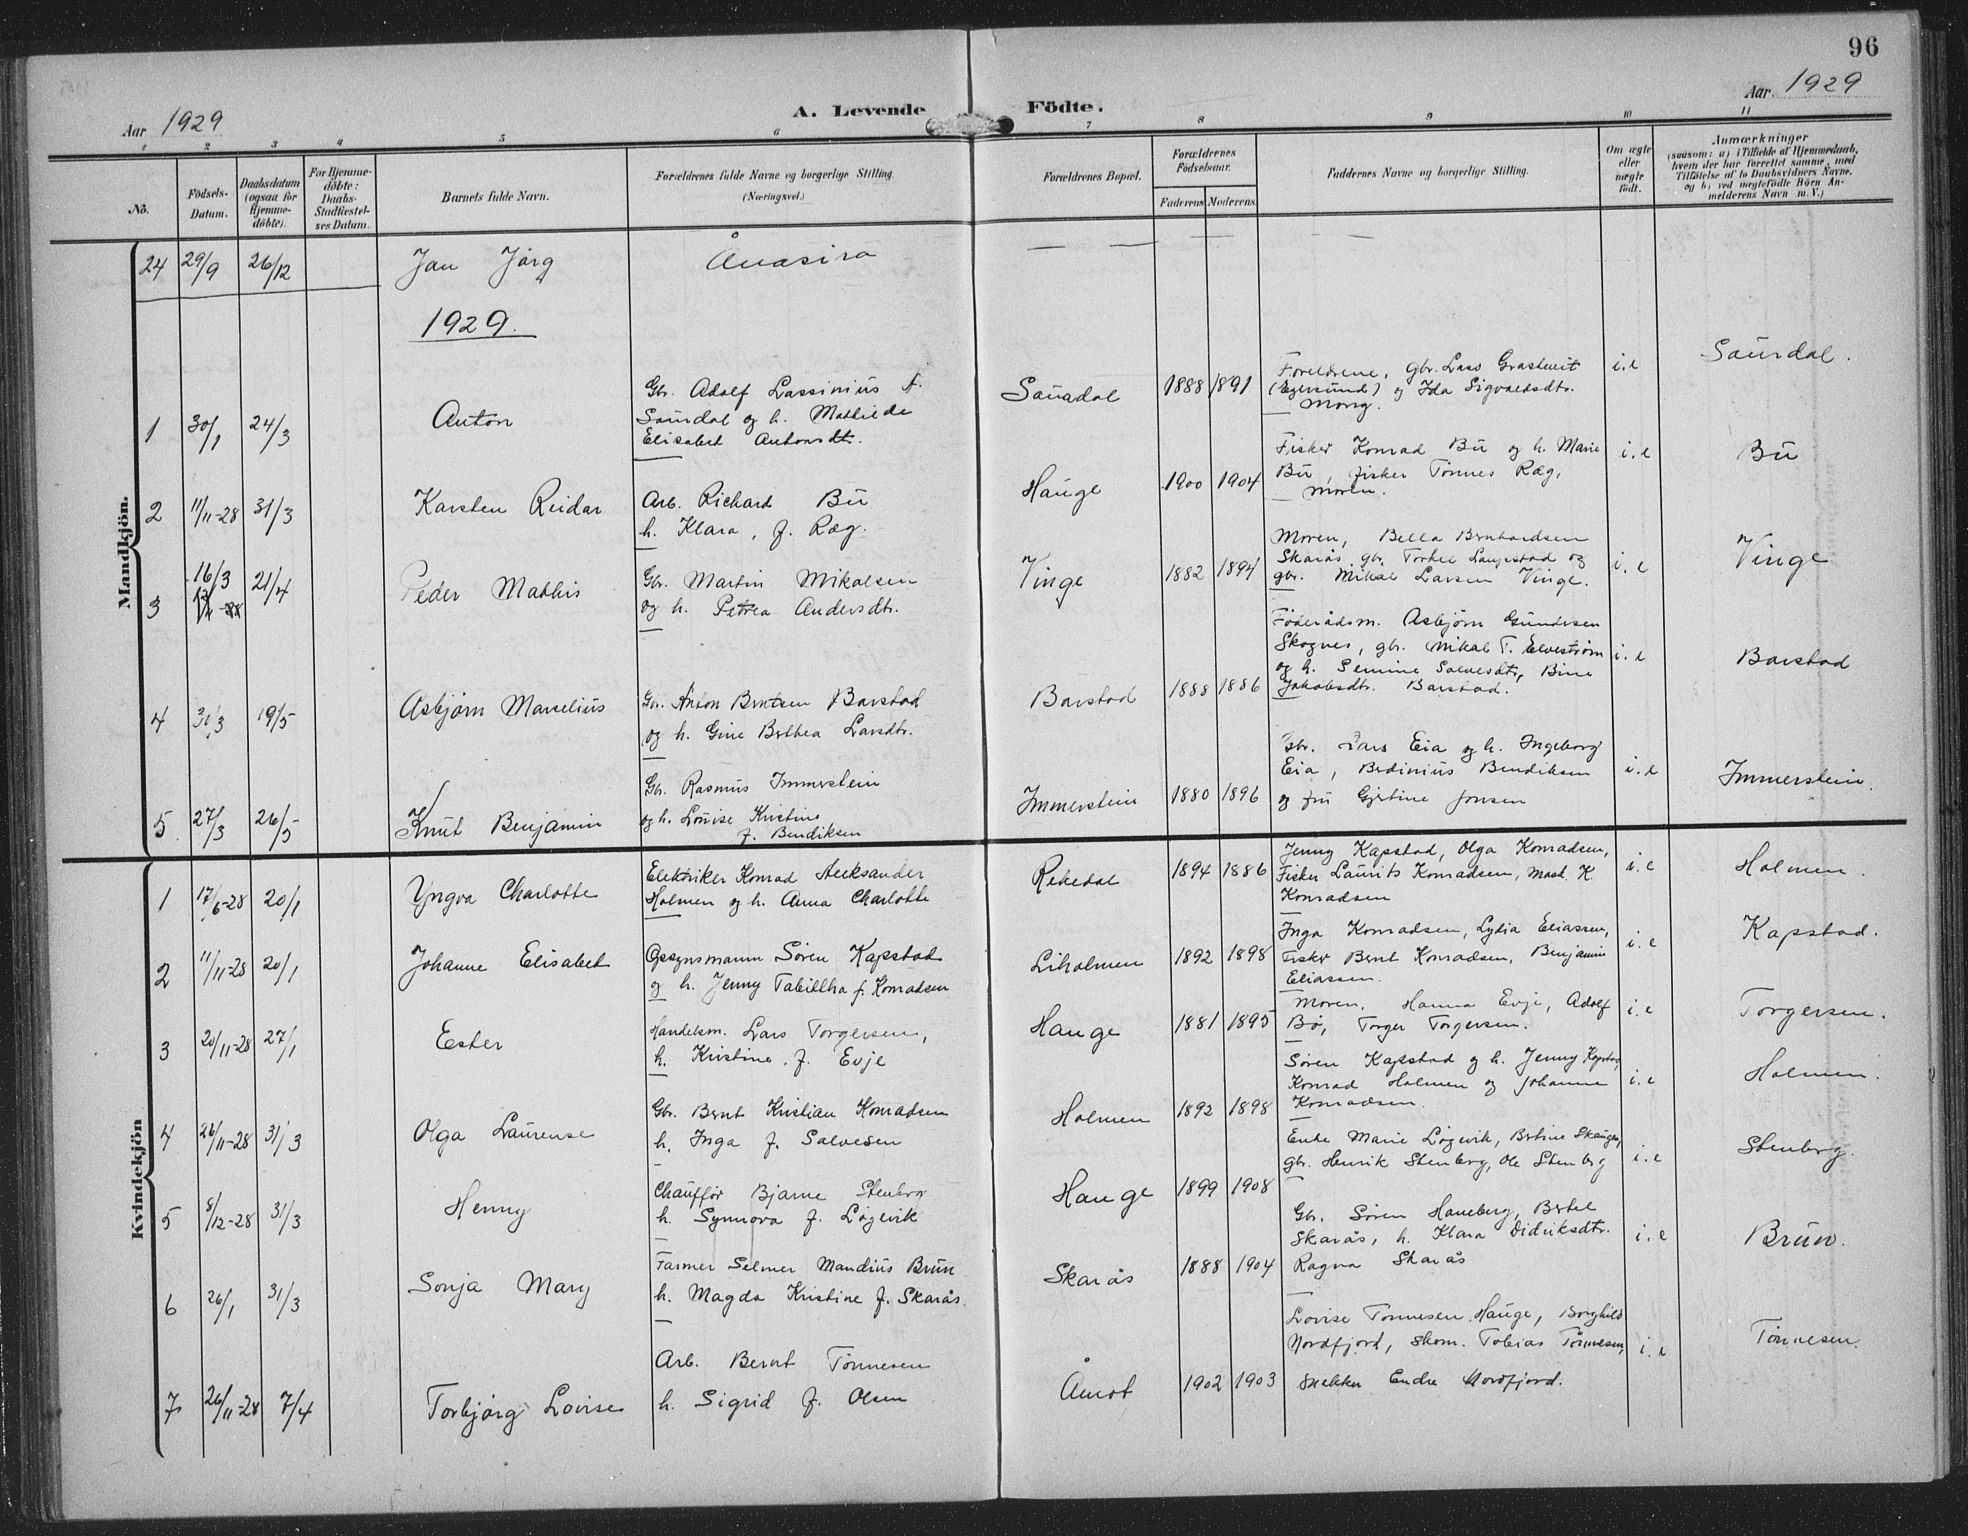 96
Aar 1929
A. Levende Födte.
Aar. 1929
1 2 3 4 5 6 7 8 9 10 11
No.
Födsels-
Datum.
Daabsdatum
(ogsaa for
Hjemme-
døbte).
For Hjemme-
döbte:
Daabs-
Stadfæstel-
ses Datum.
Barnets fulde Navn.
Forældrenes fulde Navne og borgerlige Stilling.
(Næringsvei.)
Forældrenes Bopæl.
Forældrenes
Födselsaar.
Faderens Moderens
Faddernes Navne og borgerlige Stilling.
Om ægte
eller
uægte
født.
Anmærkninger
(saasom: a) i Tilfælde af Hjemmedaab,
hvem der har forrettet samme, med
Tilföielse af to Daabsvidners Navne,
og b) ved uægtefödte Börn An-
melderens Navn m. V.)
Mandkjön.
24 29/9 26/12 Jan Jörg Ånasira — — — —
1929.
1 30/1 24/3 Anton
Gbr. Adolf Lassinius f.
Saurdal og h. Mathilde
Elisabet Antonsdtr.
Saurdal 1888 1891
Foreldrene, gbr. Lars Grastveit
(Egersund) og Ida Sigvaldsdtr.
Mong.
i.e Saurdal.
2 11/11-28 31/3 Karsten Reidar
Arb. Richard Bu
h. Klara, f. Ræg.
Hauge 1900 1904
Fisker Konrad Bu og h. Marie
Bu, fisker Tönnes Ræg,
Moren.
i.e Bu
3 16/3 21/4 Peder Mathis
Gbr. Martin Mikalsen
og h. Petrea Andersdtr.
Vinge 1882 1894
Moren, Bella Berntsardsen
Skarås, gbr. Torkel Laugestad og
gbr. Mikal Larsen Vinge.
i.e Vinge
4 31/3 19/5 Asbjörn Marselius
Gbr. Anton Berntsen Barstad
og h. Gine Berthea Larsdtr.
Barstad 1888 1886
Föderådsm. Asbjörn Gundersen
Skognes, gbr. Mikal T. Elveström
og h. Semine Salvesdtr, Bine
Jakobsdtr. Barstad.
i.e Barstad
5. 27/3 26/5 Knut Benjamin
Gbr. Rasmus Immerstein
og h. Louise Kristine
f. Bendiksen
Immerstein 1880 1896
Gbr. Lars Eia og h. Ingeborg
Eia, Berdinius Bendiksen
og fru Gjertine Jonsen
i.e Immerstein.
Kvindekjön
1 17/6-28 20/1 Yngva Charlotte
Elektriker Konrad Aleksander
Holmen og h. Anna Charlotte
Rekedal 1894 1886
Jenny Kapstad, Olga Konradsen,
Fisker Laurits Konradsen, Mask. K.
Konradsen
i.e Holmen.
2 11/11-28 20/1 Johanne Elisabet
Opsynsmann Sören Kapstad
og h. Jenny Tabittha f. Konradsen
Liholmen 1892 1898
Inga Konradsen, Lydia Eliassen,
Fisker Bernt Konradsen, Benjamin
Eliassen.
i.e Kapstad.
3 20/11-28 27/1 Ester
Handelsm. Lars Torgersen,
h. Kristine. f. Evje
Hauge 1881 1895
Moren, Hanna Evje, Adolf
Bö, Torger Torgersen.
i.e Torgersen.
4 26/11-28 31/3 Olga Laurense
Gbr. Bernt Kristian Konradsen
h. Inga f. Salvesen
Holmen 1892 1898
Sören Kapstad og h. Jenny Kapstad,
Konrad Holmen og Johanne
Konradsen.
i.e Holmen.
5 8/12-28 31/3 Henny
Chaufför Bjarne Stenberg
h. Synnova f. Lögevik
Hauge 1899 1908
Enke Marie Lögevik, Bertine Skaugen,
gbr. Henrik Stenberg, Ole Stenberg
i.e Stenberg.
6 26/1 31/3 Sonja Mary
Farmer Selmer Mandius Brun
h. Magda Kristine f. Skarås.
Skarås 1888 1904
Gbr. Sören Haneberg, Bertel
Skarås, h. Klara Didriksdtr.
Ragna Skarås
i.e Brun.
7 26/11-28 7/4 Torbjörg Lovise
Arb. Bernt Tönnesen
h. Sigrid f. Olsen
Åmot 1902 1903
Lovise Tönnesen Hauge, Borghild
Nordfjord, Skom. Tobias Tönnesen,
snekker Endre Nordfjord.
i.e Tönnesen.